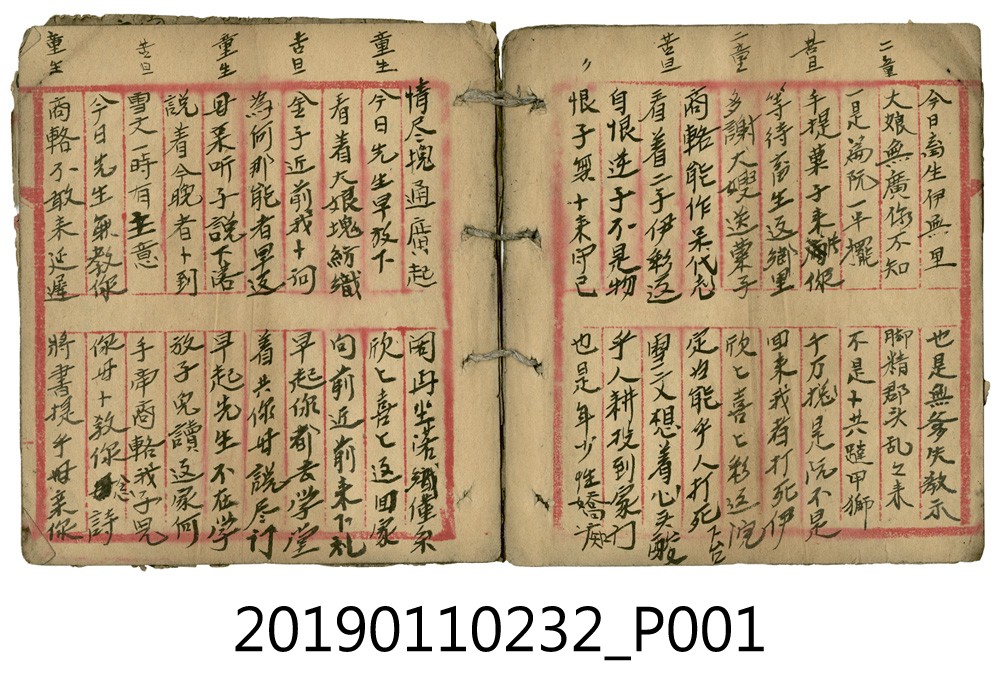 二童
今日畜生伊無里
也是無爹失教示
大娘無廣你不知
脚精郡头乱乚来
苦旦
一是為阮一平擺
不是十共躂甲獅
手提菓子来你
千万挑是阮不是
等待畜生返鄉里
回来我者打死伊
二童
多謝大嫂送菓子
欣乚喜乚彩返
商輅能作呆代志
定必能乎人打死
下台
苦旦
看着二子伊彩返
雪文想着心头酸
自恨逆子不是物
乎人耕投到家门
〃
恨子無十来守己
也是年少性嬌痴
情尽塊通廣起
閣再坐落織僅条
童生
今日先生早放下
欣乚喜乚返回家
看着大娘塊紡織
句前近前来下礼
苦旦
金子近前我十问
早起你都去学堂
為何那能者早返
着共你母说尽订
童生
母亲听子說下落
早起先生不在学
說着今晚者十到
放子兒讀返家何
苦旦
雪文一時有主意
手南商輅我子兒
今日先生無教你
你母十教你念詩
童生
商輅不敢来延遲
將書提乎母亲你
20190110232_P001